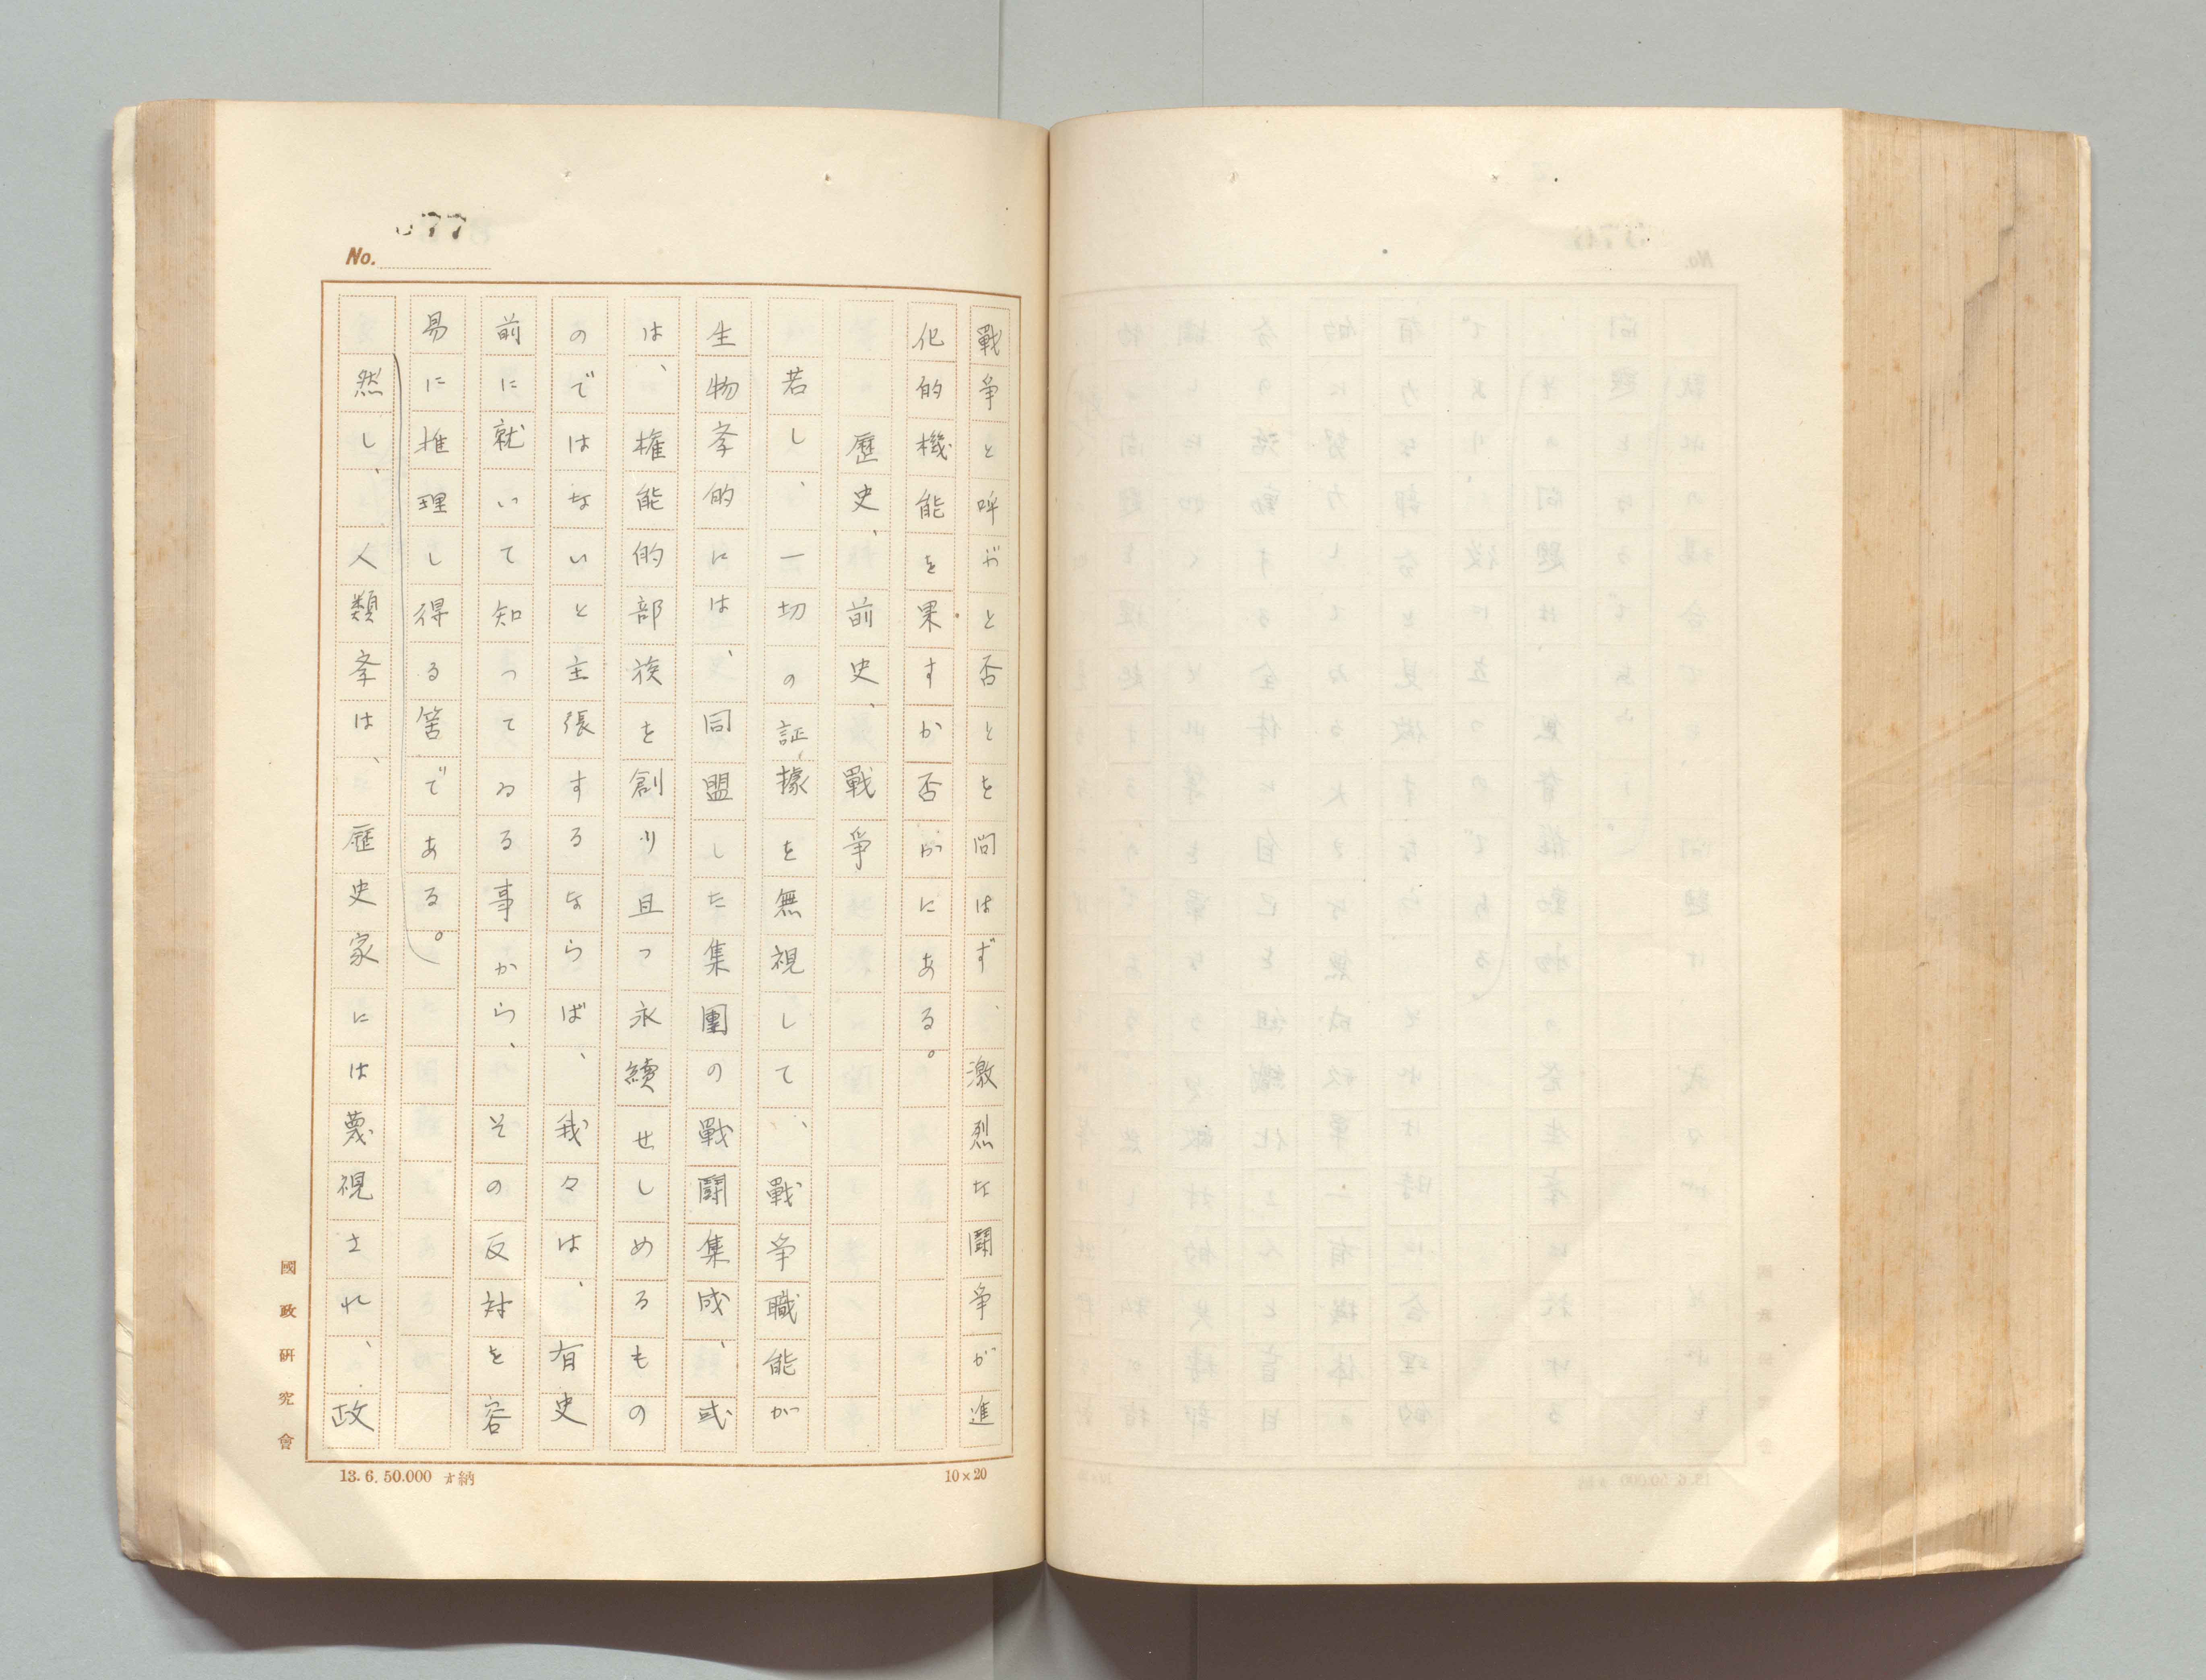 077
No.
戰争と呼ぶと否とを問はず、激烈な闘争が進
化的機能を果すか否かにある。
歷史、前史、戰爭
若し、一切の証據を無視して、戰争職能が
生物学的には、同盟した集團の戰闘集成、或
は、権能的部族を創り且つ永續せしめるもの
のではないと主張するならば、我々は、有史
前に就いて知つてゐる事から、その反対を容
易に推理し得る筈である。
然し、人類学は、歷史家には蔑視され、政
國政研究會
13.6.50.000 納
10×20